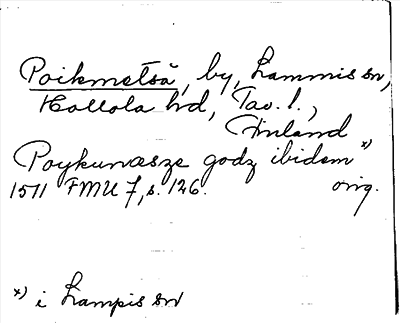 Poikmetsä, by, Lammis sn,
Hollola hd, Tav. l.,
Finland
Poykunæsze godz ibidem *)
1511 FMU 7, s. 126. orig.
*) i Lampis sn